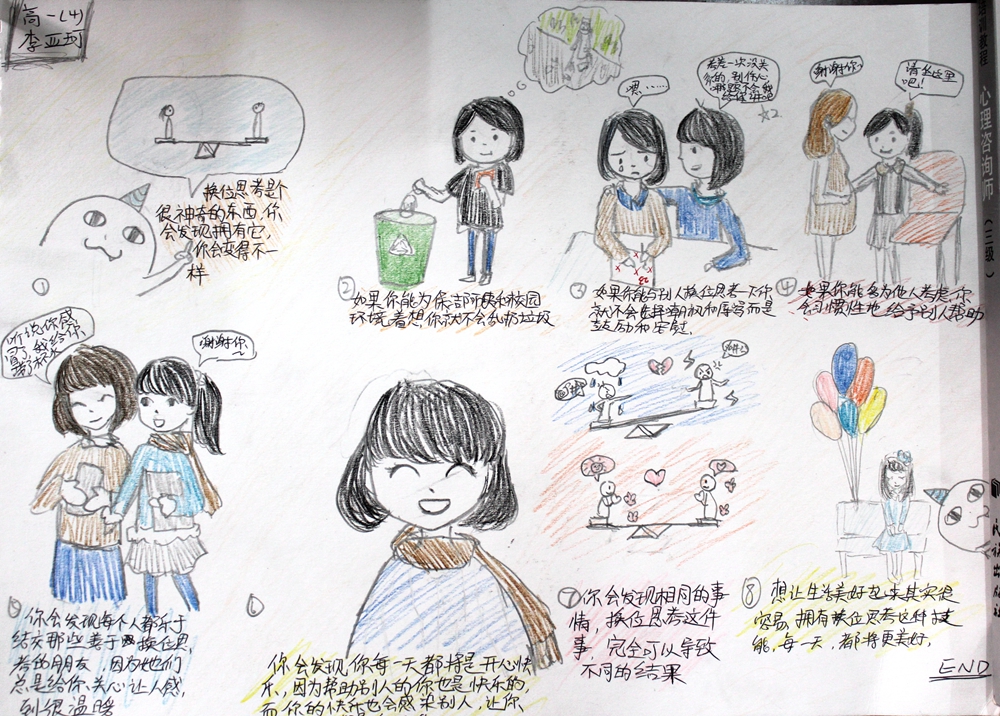 高一(4)
李亚珂
换位思考是个
很神奇的东西,你
会发现拥有它,
你会变得不一
样
①
②
如果你能为保洁部环卫和校园
环境着想,你就不会乱扔垃圾
嗯……
考差一次没关
系的,别伤心
③
如果你能与别人换位思考一下,你
就不会 而是
鼓励和安慰.
谢谢你~
请坐这里
吧!
④
如果你能多为他人考虑,你
会习惯性地给予别人帮助
听说你感
冒了,我给你
谢谢你
~
你会发现每个人都乐于
结交那些善于换位思
考的朋友,因为她们
总是给你关心,让人感
到很温暖
⑥
你会发现,你每一天都将是开心快
乐,因为帮助别人的你也是快乐的,
而你的快乐也会感染别人,让你
⑦
你会发现相同的事
情,换位思考这件
事,完全可以导致
不同的结果
⑧
想让生活美好起来其实很
容易,拥有换位思考这种技
能,每一天,都将更美好,
END
教程
心理咨询师
(三级)